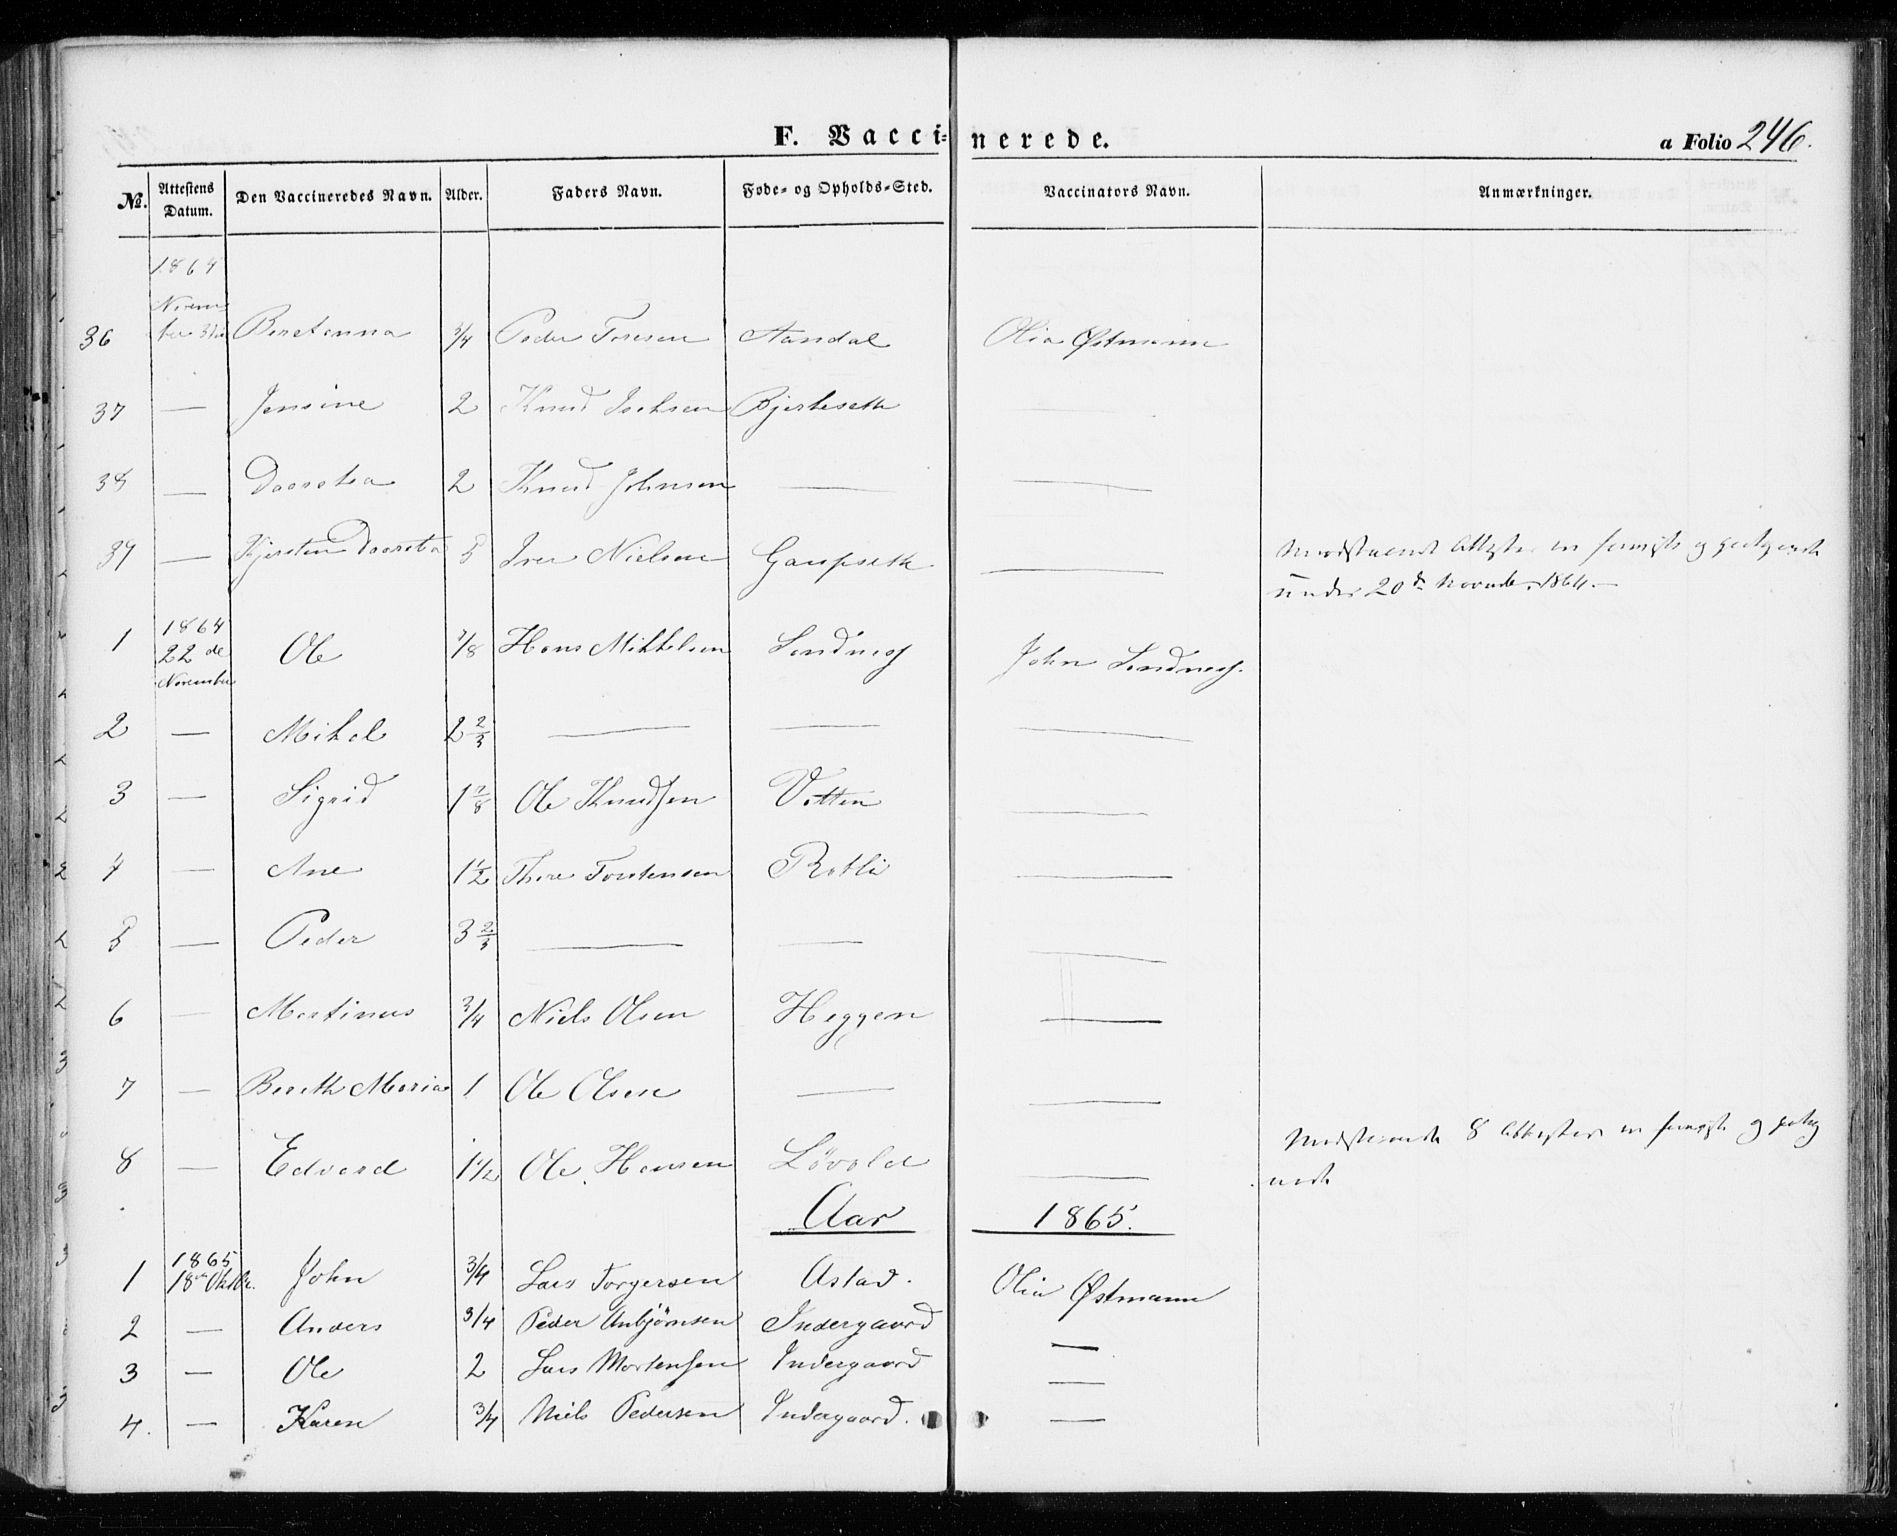 F. Vaccinerede.
a Folio 246.
No. Attestens Datum. Den Vaccineredes Navn. Alder. Faders Navn. Føde- og Opholds-Sted. Vaccinators Navn. Anmærkninger.
1864
Novem-
36 ber Beretanna 3/4 Peder Toresen Aandal Olia Østmann
37 — Jensine 2 Knud Bjerkeseth —
38 — Daaretea 2 Knud Johnsen — —
39 — Kjersten Daaretea 5 Iver Nielsen Gaupseth —
Modstaaende Attester er og
under 20de November 1864.—
1864
1 22de November Ole 7/8 Hans Mikkelsen Lindnes John Lindnes.
2 — Mikal 2 2/3 — — —
3 — Sigrid 1 7/8 Ole Knudsen Vatten —
4 — Ane 1 1/2 Thore Torstensen Rotli —
5 — Peder 3 2/3 — — —
6 — Martinus 3/4 Niels Olsen Heggen —
7 — Bereth Maria 1 Ole Olsen — —
8 — Edvard 1 1/2 Ole Hansen Løvold —
Modstaaende 8 Attester er og
Aar 1865.
1865
1 18de Oktbr. John 3/4 Lars Torgersen Astad. Olia Østmann
2 — Anders 3/4 Peder Anbjørnsen Indergaard —
3 — Ole 2 Lars Mortensen Indergaard —
4. — Karen 3/4 Niels Pedersen Indergaard. —